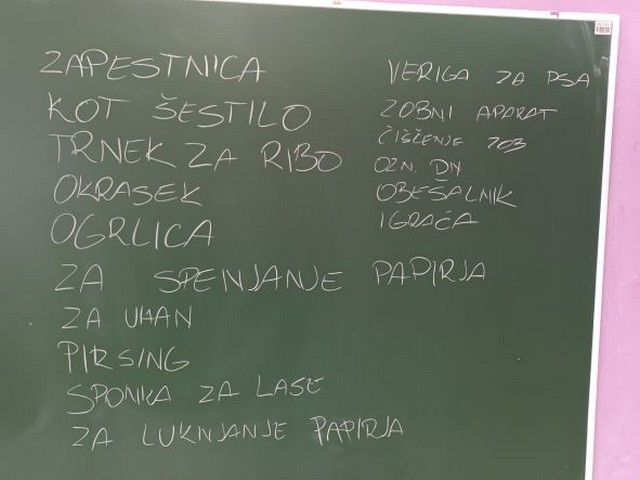 ZAPESTNICA
KOT ŠESTILO
TRNEK ZA RIBO
OKRASEK
OGRLICA
ZA SPENJANJE PAPIRJA
ZA UHAN
PIRSING
SPONKA ZA LASE
ZA LUKNJANJE PAPIRJA
VERIGA ZA PSA
ZOBNI APARAT
ČIŠČENJE ZOB
OZN. DN
OBEŠALNIK
IGRAČA